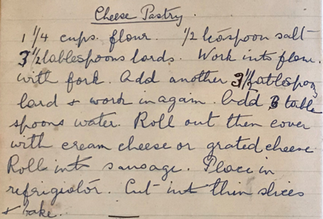 Cheese Pastry.
1 1/4 cups. flour. 1/2 teaspoon salt
3 1/2 tablespoons lards. Work into flour
with fork. Add another 3 1/2 tablespoon
lard & work in again. Add 3 table
spoons water. Roll out then cover
with cream cheese or grated cheese
Roll into sausage. Place in
refrigistor. Cut into thin slices
& bake.